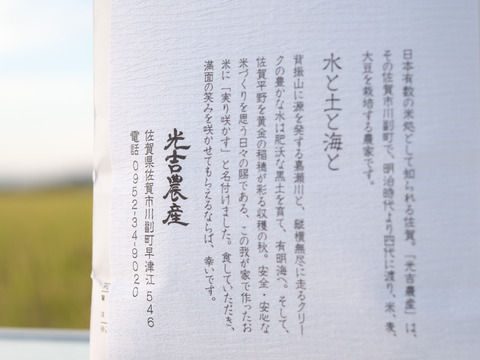 日本有数の米処として知られる佐賀。「光吉農産」は、
その佐賀市川副町で、明治時代より四代に渡り、米、麦、
大豆を栽培する農家です。
水と土と海と
背振山に源を発する嘉瀬川と、縦横無尽に走るクリー
クの豊かな水は肥沃な黒土を育て、有明海へ。そして、
佐賀平野を黄金の稲穂が彩る収穫の秋。安全・安心な
米づくりを思う日々の賜である、この我が家で作ったお
米に「実り咲かす」と名付けました。食していただき、
満面の笑みを咲かせてもらえるならば、幸いです。
光吉農産
佐賀県佐賀市川副町早津江546
電話 0952-34-9020